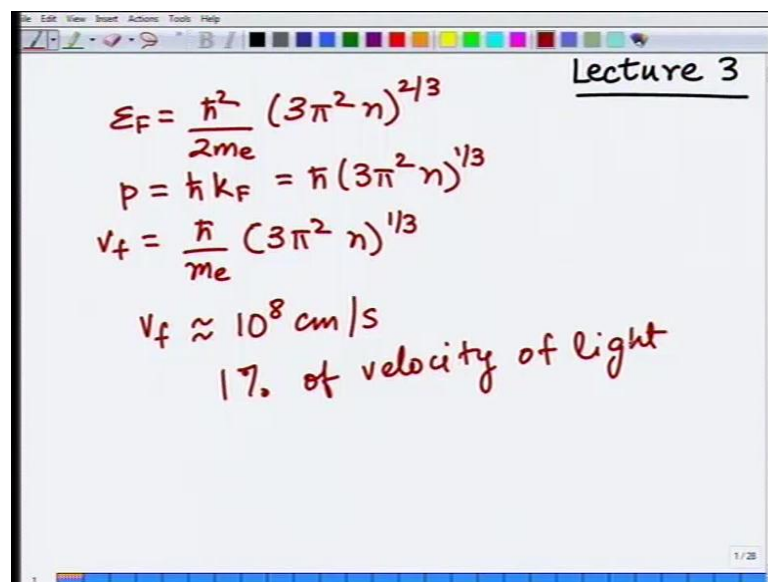 ile Edit View Insert Actions Tools Help
B I
Lecture 3
εF = ħ²/2me (3π² n)^2/3
p = ħ kF = ħ (3π² n)^1/3
vf = ħ/me (3π² n)^1/3
vf ≈ 10⁸ cm/s
1% of velocity of light
1/28
1